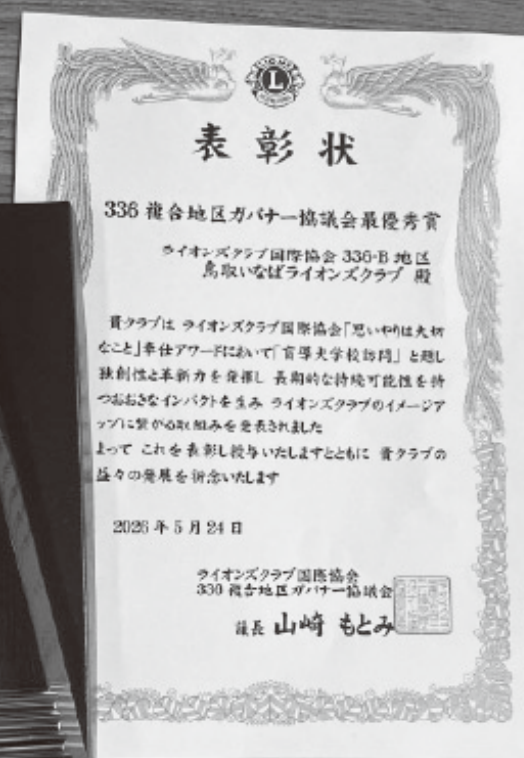 表彰状
336 複合地区ガバナー協議会最優秀賞
ライオンズクラブ国際協会 336-B 地区
鳥取いなばライオンズクラブ 殿
貴クラブは ライオンズクラブ国際協会「思いやりは大切
なこと」奉仕アワードにおいて「盲導犬学校訪問」と題し
独創性と革新力を発揮し 長期的な持続可能性を持
つおおきなインパクトを生み ライオンズクラブのイメージア
ップに繋がる取組みを発表されました
よって これを表彰し授与いたしますとともに 貴クラブの
益々の発展を祈念いたします
2026 年 5 月 24 日
ライオンズクラブ国際協会
336 複合地区ガバナー協議会
議長 山崎 もとみ